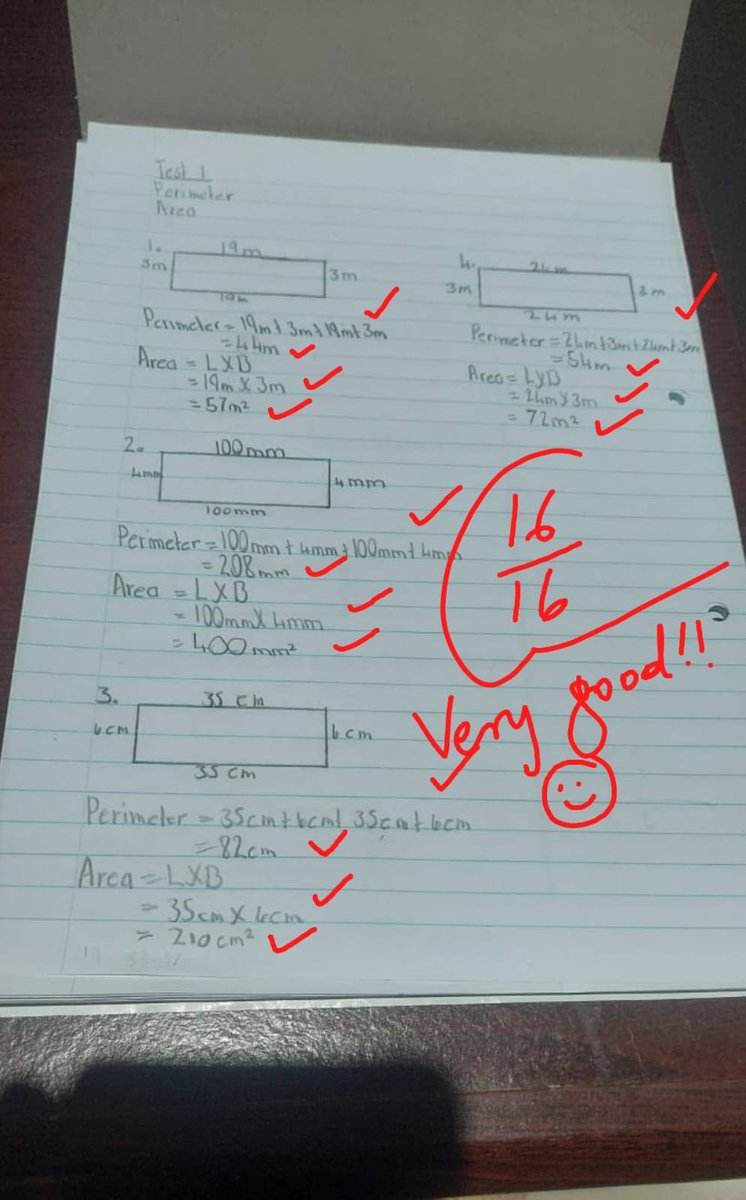 Test 1
Perimeter
Area
1.
19m
3m
3m
19m
Perimeter = 19m + 3m + 19m + 3m
= 44m
Area = L X B
= 19m X 3m
= 57m²
2.
100mm
4mm
4mm
100mm
Perimeter = 100mm + 4mm + 100mm + 4mm
= 208mm
Area = L X B
= 100mm X 4mm
= 400mm²
3.
35 cm
6cm
6cm
35 cm
Perimeter = 35cm + 6cm + 35cm + 6cm
= 82cm
Area = L X B
= 35cm X 6cm
= 210cm²
4.
24m
3m
3m
24m
Perimeter = 24m + 3m + 24m + 3m
= 54m
Area = L X B
= 24m X 3m
= 72m²
16
16
Very good!!